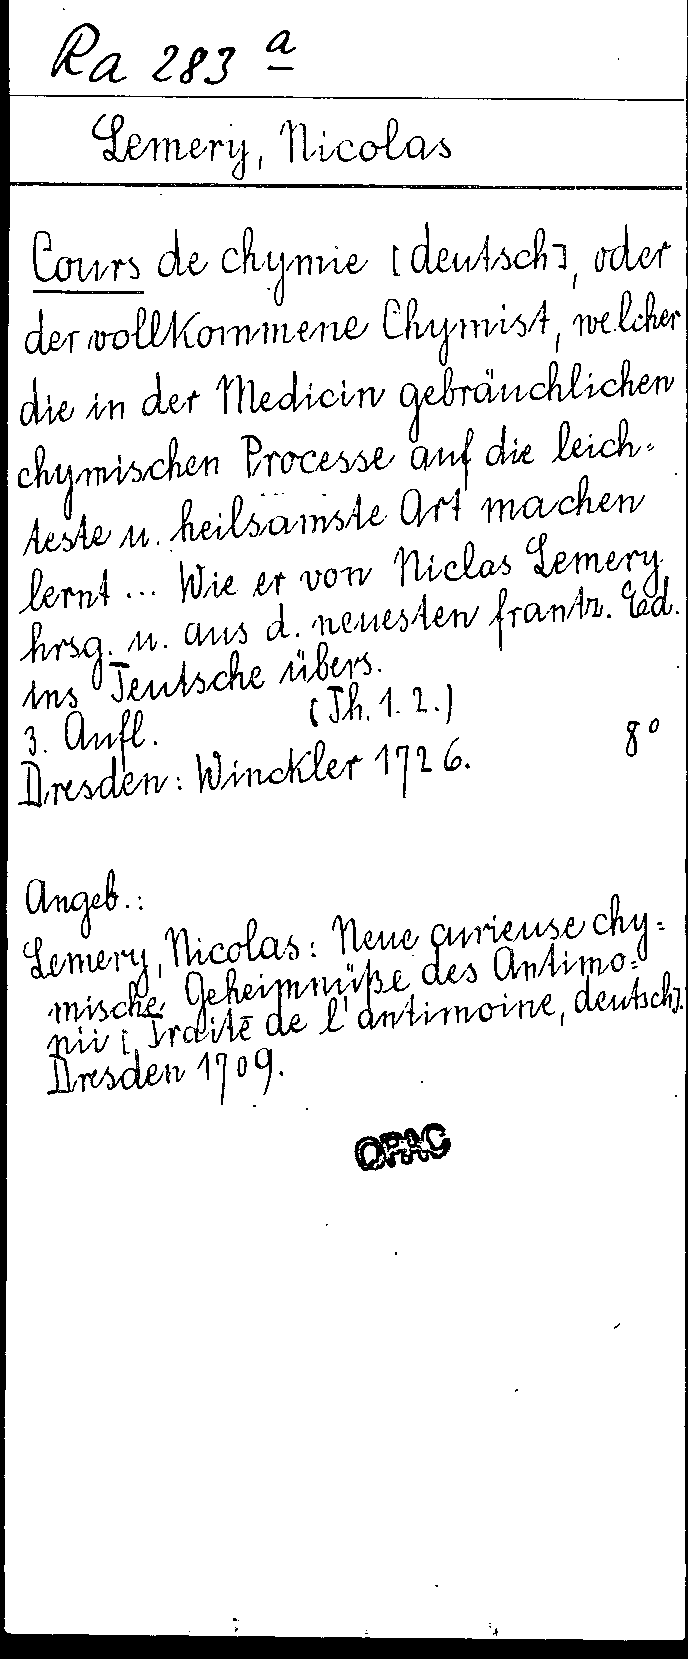 Ra 283 a
Lemery, Nicolas
Cours de chymie [deutsch], oder
der vollkommene Chymist, welcher
die in der Medicin gebräuchlichen
chymischen Processe auf die leich-
teste u. heilsamste Art machen
lernt ... Wie er von Niclas Lemery
hrsg. u. aus d. neuesten frantz. Ed.
ins Teutsche übers.
3. Aufl. (Th. 1. 2.)
Dresden: Winckler 1726. 8°
Angeb.:
Lemery, Nicolas: Neue curieuse chy=
mische Geheimnüße des Antimo=
nii [Traité de l'antimoine, deutsch].
Dresden 1709.
OPAC